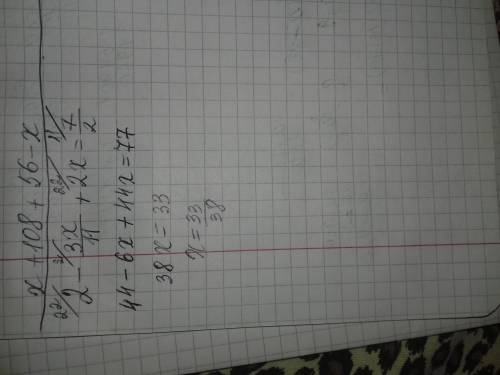 x + 108 + 56 - x
22/ 2 - 2/ 3x/11 + 22/ 2x = 11/ 7/2
44 - 6x + 44x = 77
38x = 33
x = 33/38